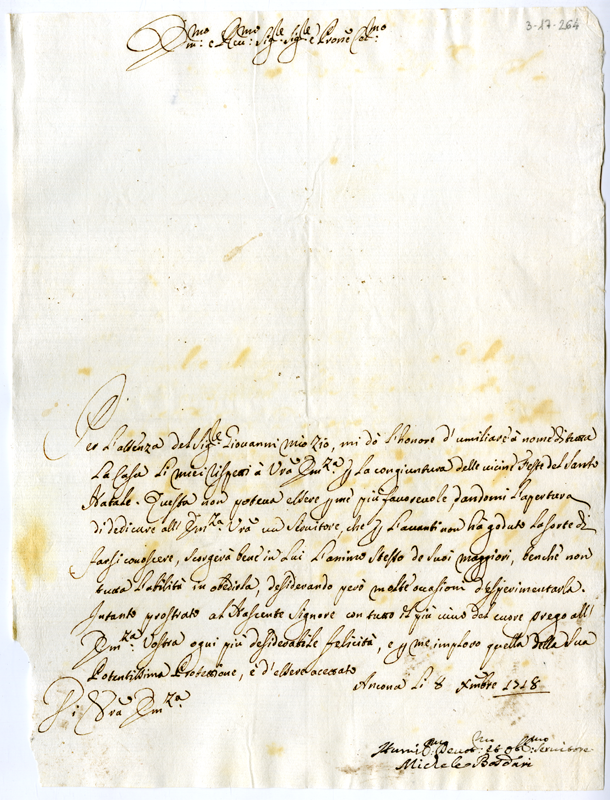 3-17-264
Em.mo e Reu.mo Sig.re Sig.re e Prone Col.mo
Per l'assenza del Sig.re Giovanni mio Zio, mi dò l'honore d'umiliare à nome di tutta
La Casa li miei rispetti à Vra Em.za p La congiuntura delle vicine Feste del Santo
Natale. Questa non poteva essere p me più favorevole, dandomi l'apertura
di dedicare all' Em.za Vra un servitore, che p l'avanti non hà goduto la sorte di
farsi conoscere, scorgerà bene in Lui l'animo stesso de suoi maggiori, benche non
tutta l'abilità in obedirla, desiderando però molte occasioni d'esperimentarla.
Intanto prostrato al Nascente Signore con tutto il più vivo del cuore prego all'
Em.za Vostra ogni più desiderabile felicità, e p me imploro quella della sua
Potentissima Protezzione, e d'essere accertato
Ancona li 8 Xmbre 1718
Di Vra Em.za
Humil.mo Deuot.mo et Obl.mo Servitore
Michele